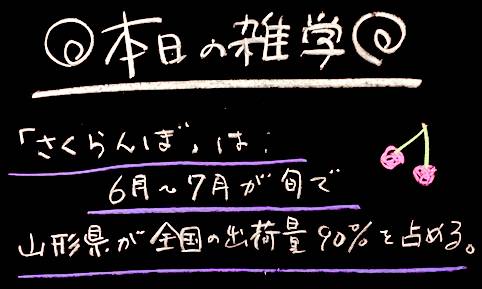 本日の雑学
「さくらんぼ」は:
6月~7月が旬で
山形県が全国の出荷量90%を占める。